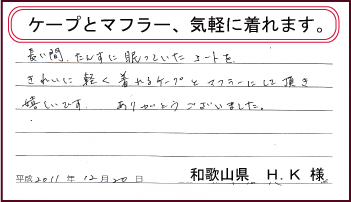 ケープとマフラー、気軽に着れます。
長い間、たんすに眠っていたコートを
きれいに軽く着れるケープとマフラーにして頂き
嬉しいです。ありがとうございました。
平成2011年12月20日 和歌山県 H.K 様